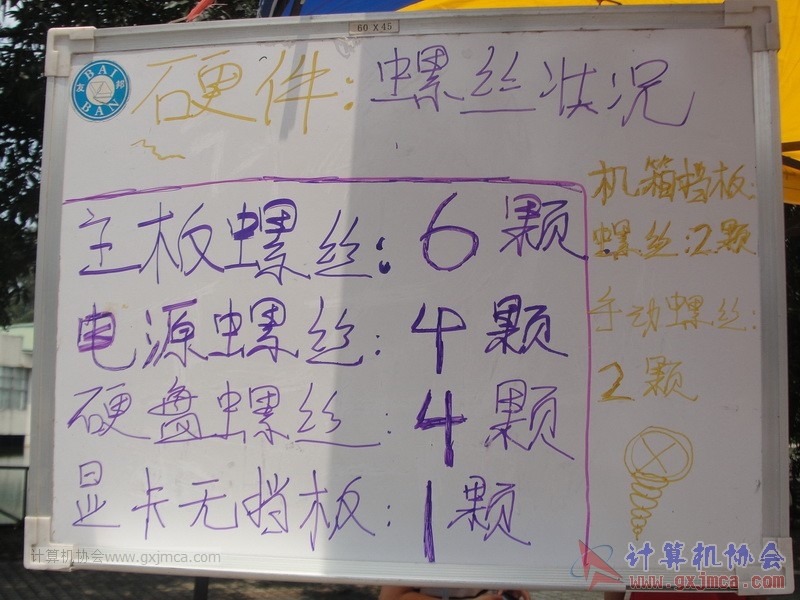 60 X 45
BAI
友 邦
BAN
硬件:螺丝状况
主板螺丝:6颗
电源螺丝:4颗
硬盘螺丝:4颗
显卡无挡板:1颗
机箱挡板
螺丝:2颗
手动螺丝:
2颗
计算机协会www.gxjmca.com
计算机协会
www.gxjmca.com